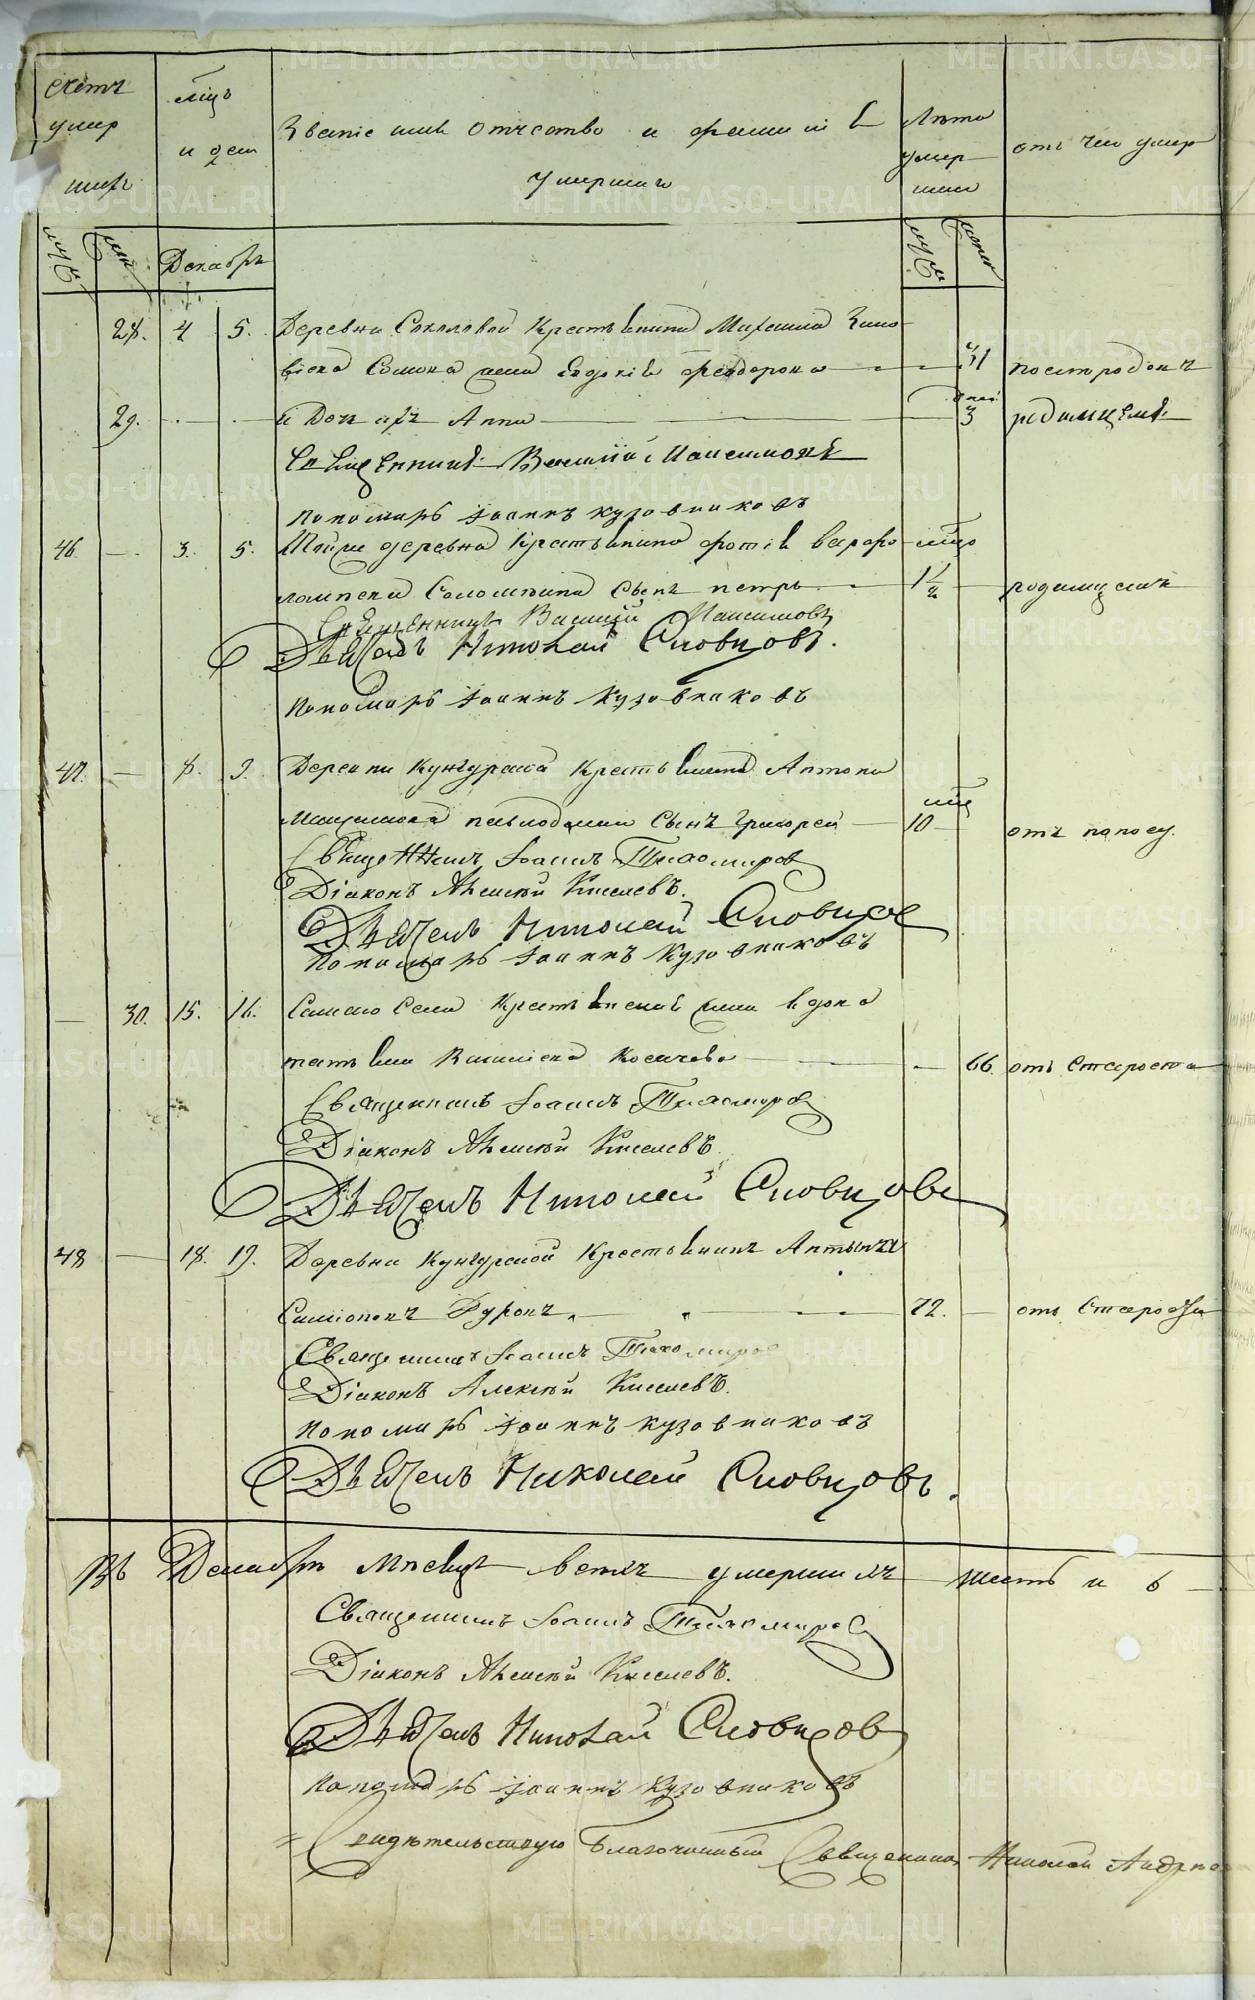 METRIKI.GASO-URAL.RU
счетъ умер шихъ
мцъ и ден
Званіе имя отчество и фамиліи
умершихъ
Лета умер шихъ
отъ чего умер
муж жен Декабрь муж женс
28. 4 5. Деревни Соколовой Крестьянина Михаила Зино-
віева Сомова жена Евдокія Феодорова 41 после родовъ
29. и Дочь ихъ Анна дней 3 родимцемъ
Священникъ Василій Максимовъ
Пономарь Іоаннъ Кузовниковъ
46. 3. 5. Тойже деревни Крестьянина Фотія Варфо- мцъ
ломеева Соломеина сынъ петръ 1 1/2 родимцемъ
Священникъ Василій Максимовъ
Дьячекъ Николай Словцовъ.
Пономарь Іоаннъ Кузовниковъ
47. 8. 9. Деревни Кунгурской Крестьянина Антона
сынъ Григорей мцъ 10 отъ поносу.
Священникъ Іоаннъ Тихомировъ
Діаконъ Алексѣй Киселевъ.
Дьячекъ Николай Словцовъ
Пономарь Іоаннъ Кузовниковъ
30. 15. 16. Самаго Села Крестьянская жена вдова
Васильева Косачева 66. отъ Старости
Священникъ Іоаннъ Тихомировъ
Діаконъ Алексѣй Киселевъ.
Дьячекъ Николай Словцовъ
48 18. 19. Деревни Кунгурской Крестьянинъ
72. отъ Старости
Священникъ Іоаннъ Тихомировъ
Діаконъ Алексѣй Киселевъ.
Пономарь Іоаннъ Кузовниковъ
Дьячекъ Николай Словцовъ.
Въ Декабрѣ Мѣсяцѣ всѣхъ умершихъ шесть и 6
Священникъ Іоаннъ Тихомировъ
Діаконъ Алексѣй Киселевъ.
Дьячекъ Николай Словцовъ
Пономарь Іоаннъ Кузовниковъ
Свидѣтельствую Благочинный Священникъ Николай